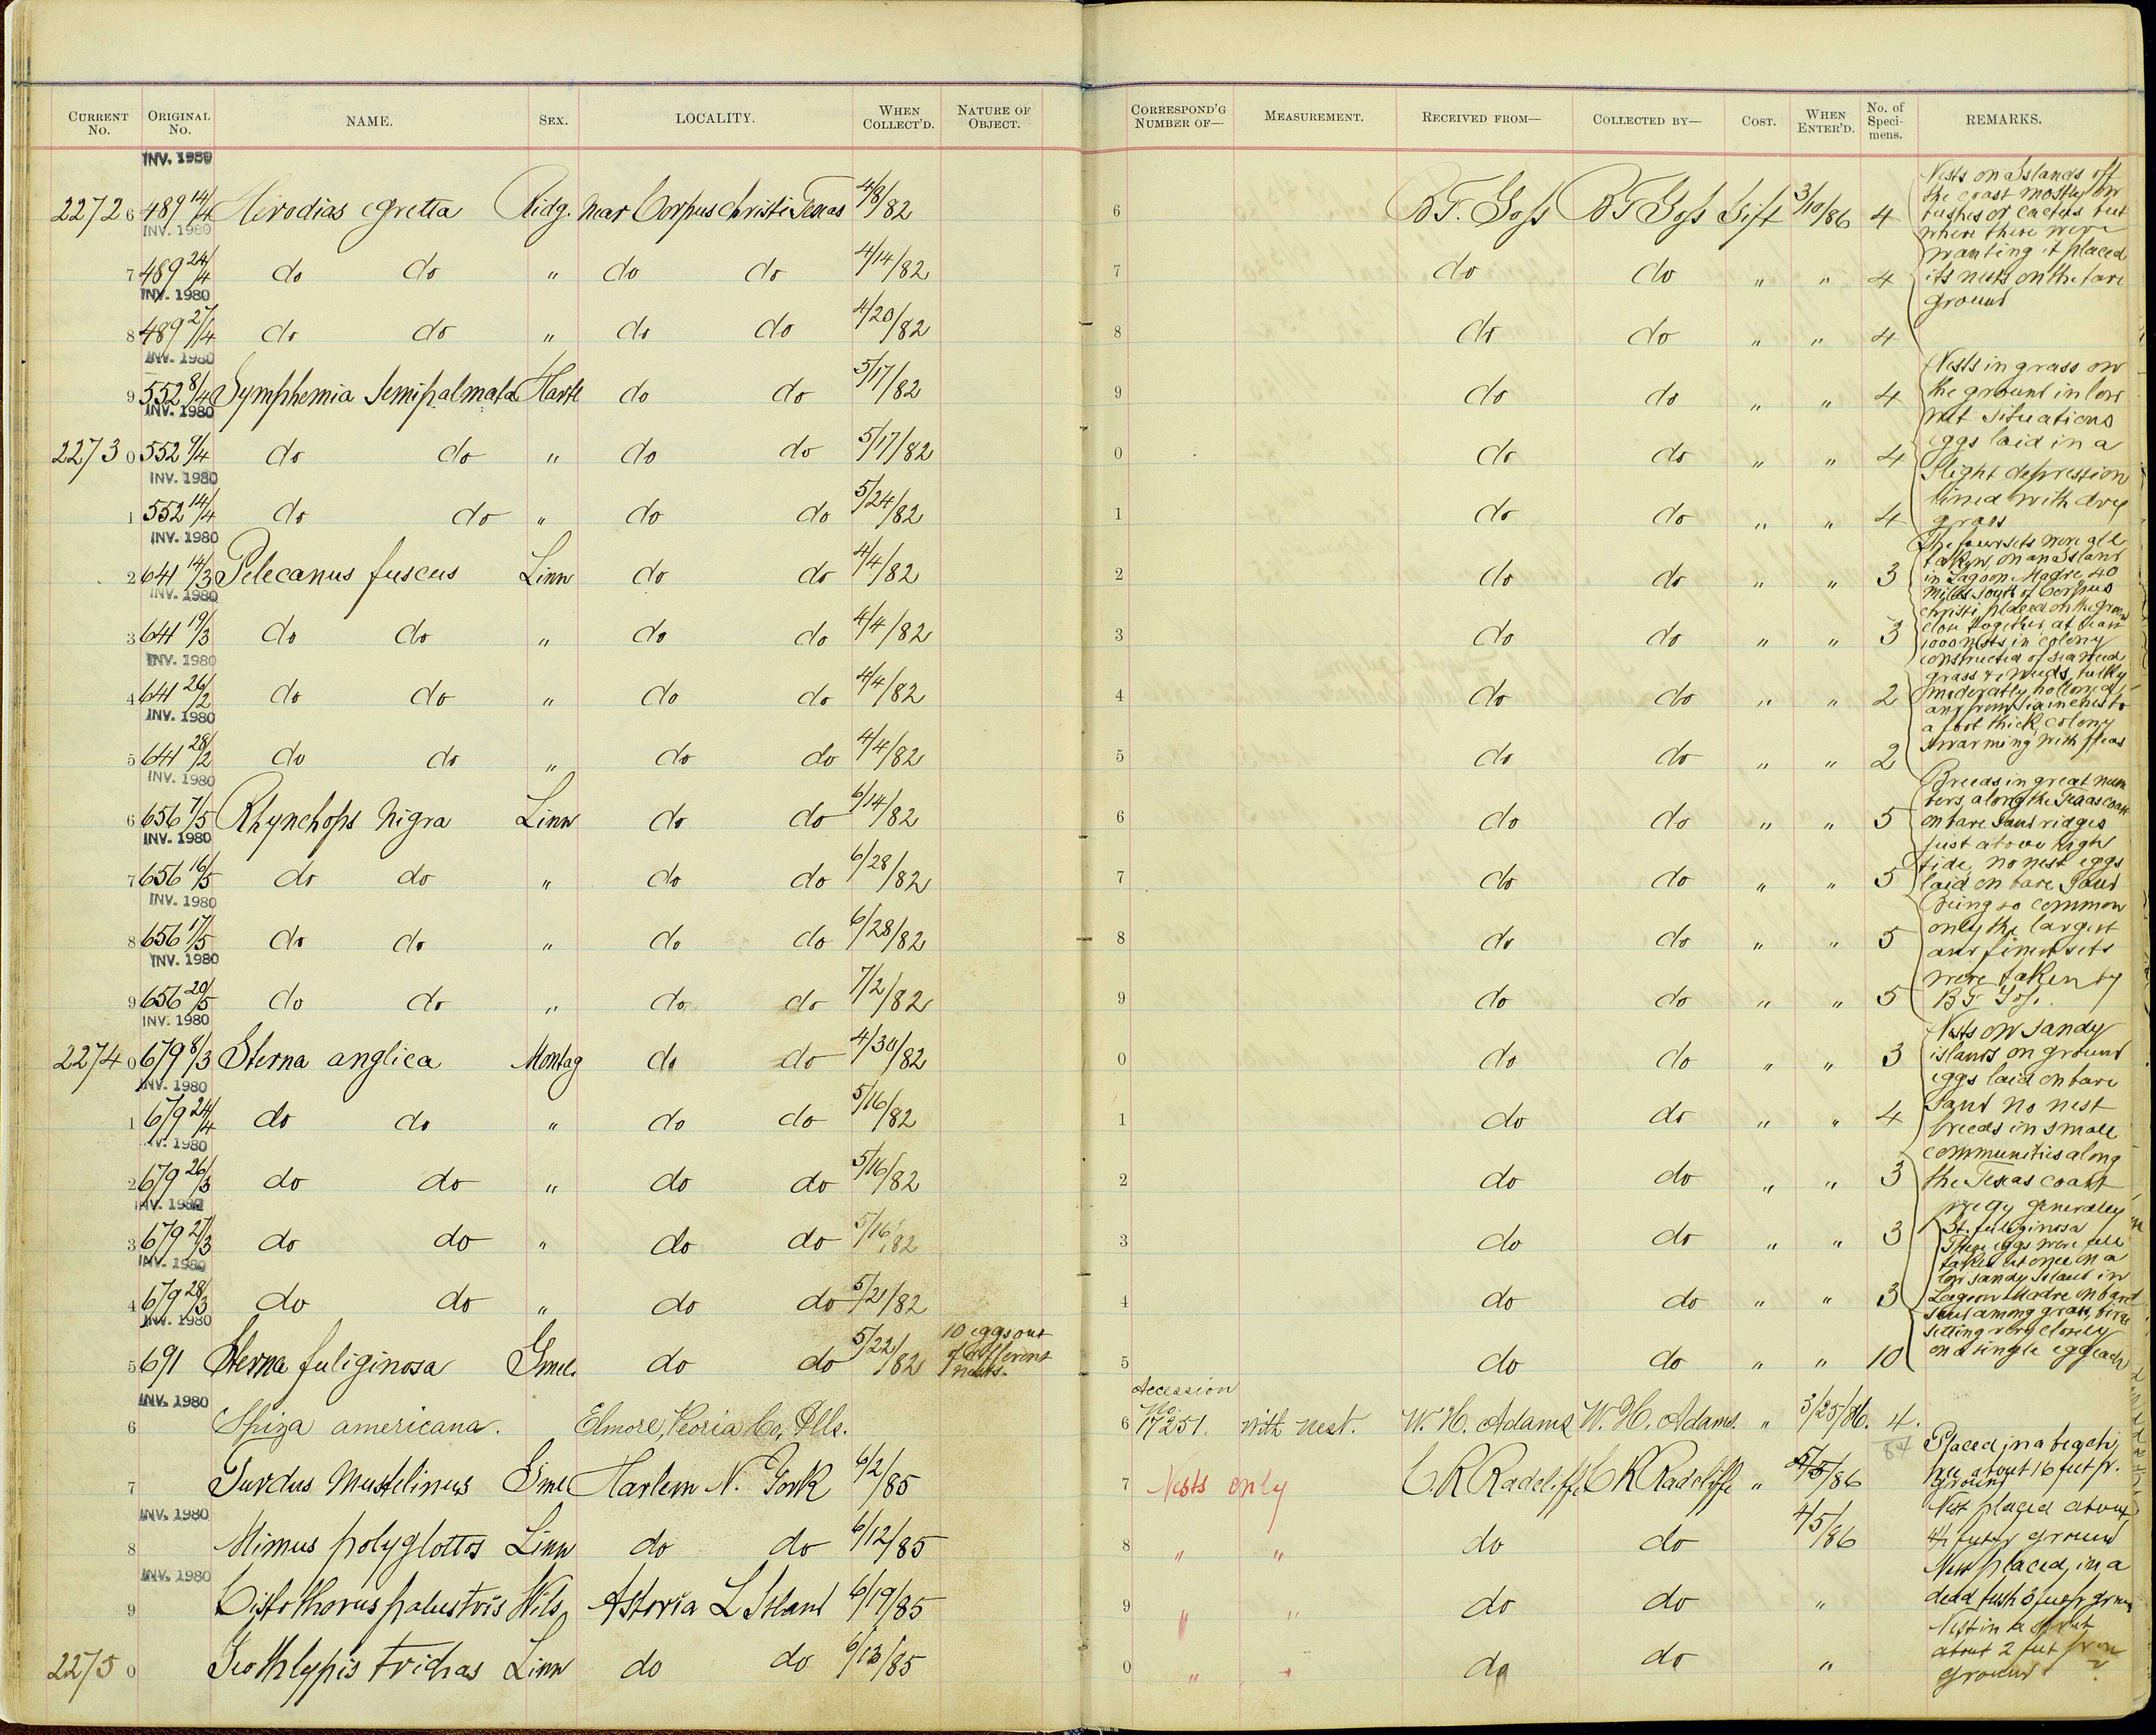 CURRENT No. ORIGINAL No. NAME. SEX. LOCALITY. WHEN COLLECT'D. NATURE OF OBJECT. CORRESPOND'G NUMBER OF— MEASUREMENT. RECEIVED FROM— COLLECTED BY— COST. WHEN ENTER'D. No. of Specimens. REMARKS.
INV. 1980
22726 489 14/4 Herodias egretta Ridg. near Corpus christi Texas 4/8/82 6 B.F. Goss B F Goss Gift 3/10/86 4
Nests on Islands off
the coast mostly on
bushes or cactus but
where there were
wanting it placed
its nests on the bare
ground
INV. 1980
7 489 24/4 do do " do do 4/14/82 7 do do " " 4
INV. 1980
8 489 27/4 do do " do do 4/20/82 8 do do " " 4
INV. 1980
9 552 8/4 Symphemia semipalmata Hartl do do 5/17/82 9 do do " " 4
Nests in grass on
the ground in low
wet situations
eggs laid in a
slight depression
lined with dry
grass
INV. 1980
22730 552 9/4 do do " do do 5/17/82 0 do do " " 4
INV. 1980
1 552 14/4 do do " do do 5/24/82 1 do do " " 4
INV. 1980
2 641 14/3 Pelecanus fuscus Linn do do 4/4/82 2 do do " " 3
The four sets were all
taken on an Island
in Lagoon Madre 40
miles south of Corpus
christi placed on the ground
close together at least
1000 nests in colony
constructed of sea weed
grass & weeds, bulky
moderatly hollowed,
and from six inches to
a foot thick, colony
swarming with fleas
INV. 1980
3 641 19/3 do do " do do 4/4/82 3 do do " " 3
INV. 1980
4 641 26/2 do do " do do 4/4/82 4 do do " " 2
INV. 1980
5 641 28/2 do do " do do 4/4/82 5 do do " " 2
INV. 1980
6 656 7/5 Rhynchops nigra Linn do do 6/14/82 6 do do " " 5
Breeds in great num
bers, along the Texas coast
on bare sand ridges
just above high
tide, no nest eggs
laid on bare sand
Being so common
only the largest
and finest sets
were taken by
B F Goss.
INV. 1980
7 656 16/5 do do " do do 6/28/82 7 do do " " 5
INV. 1980
8 656 17/5 do do " do do 6/28/82 8 do do " " 5
INV. 1980
9 656 20/5 do do " do do 7/2/82 9 do do " " 5
INV. 1980
22740 679 8/3 Sterna anglica Montag do do 4/30/82 0 do do " " 3
Nests on sandy
islands on ground
eggs laid on bare
sand no nest
breeds in small
communities along
the Texas coast
generally
INV. 1980
1 679 24/4 do do " do do 5/16/82 1 do do " " 4
INV. 1980
2 679 26/3 do do " do do 5/16/82 2 do do " " 3
INV. 1980
3 679 27/3 do do " do do 5/16/82 3 do do " " 3
INV. 1980
4 679 28/3 do do " do do 5/21/82 4 do do " " 3
INV. 1980
5 691 Sterna fuliginosa Gmel. do do 5/22/82 10 eggs out of different nests. 5 do do " " 10
St. fuliginosa
These eggs were all
taken at once on a
low sandy Island in
Lagoon Madre on bare
sand among grass, birds
setting very closely
on a single egg each
INV. 1980
6 Spiza americana. Elmore, Peoria Co, Ills. 6 Accession No. 17251. with nest. W. H. Adams W. H. Adams. " 3/25/86. 4.
7 Turdus Mustelinus Gmel Harlem N. York 6/2/85 7 Nests only C.R Radcliffe C R Radcliffe " 4/5/86 84
Placed in a beach
tree about 16 feet fr.
ground
INV. 1980
8 Mimus polyglottos Linn do do 6/12/85 8 " " do do 4/5/86
Nest placed about
4 1/2 feet fr ground
INV. 1980
9 Cistothorus palustris Wils Astoria L Island 6/19/85 9 " " do do "
Nest placed in a
dead bush 3 feet fr ground
22750 Geothlypis trichas Linn do do 6/13/85 0 " " do do "
Nest in a
about 2 feet from
ground